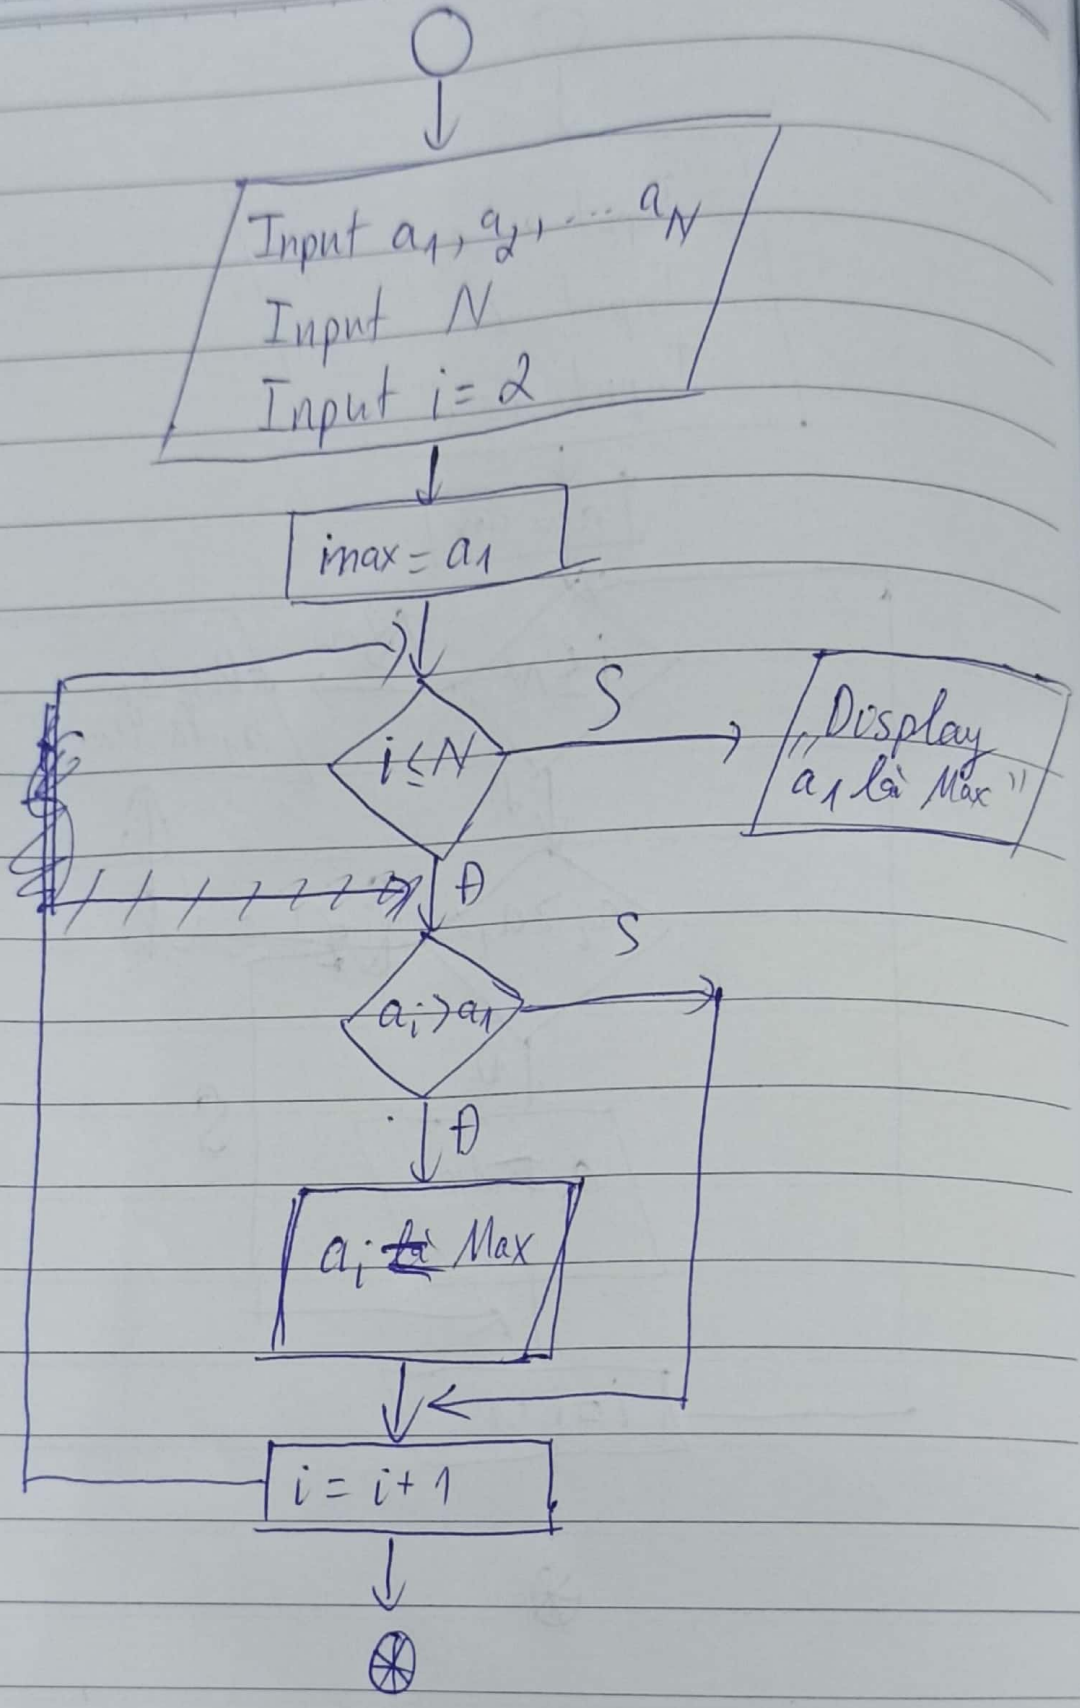 Input a1, a2, ... aN
Input N
Input i = 2
imax = a1
i ≤ N
S
„Dosplay
a1 là Max"
Đ
ai > a1
S
Đ
ai là Max
i = i + 1